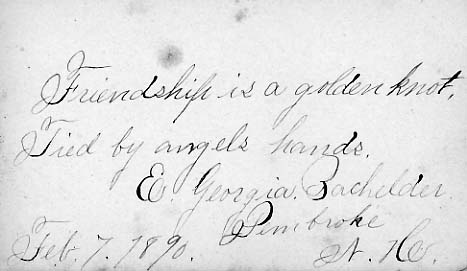 Friendship is a golden knot,
Tied by angels hands.
E. Georgia. Bachelder.
Pembroke
Feb. 7. 1890. N. H.